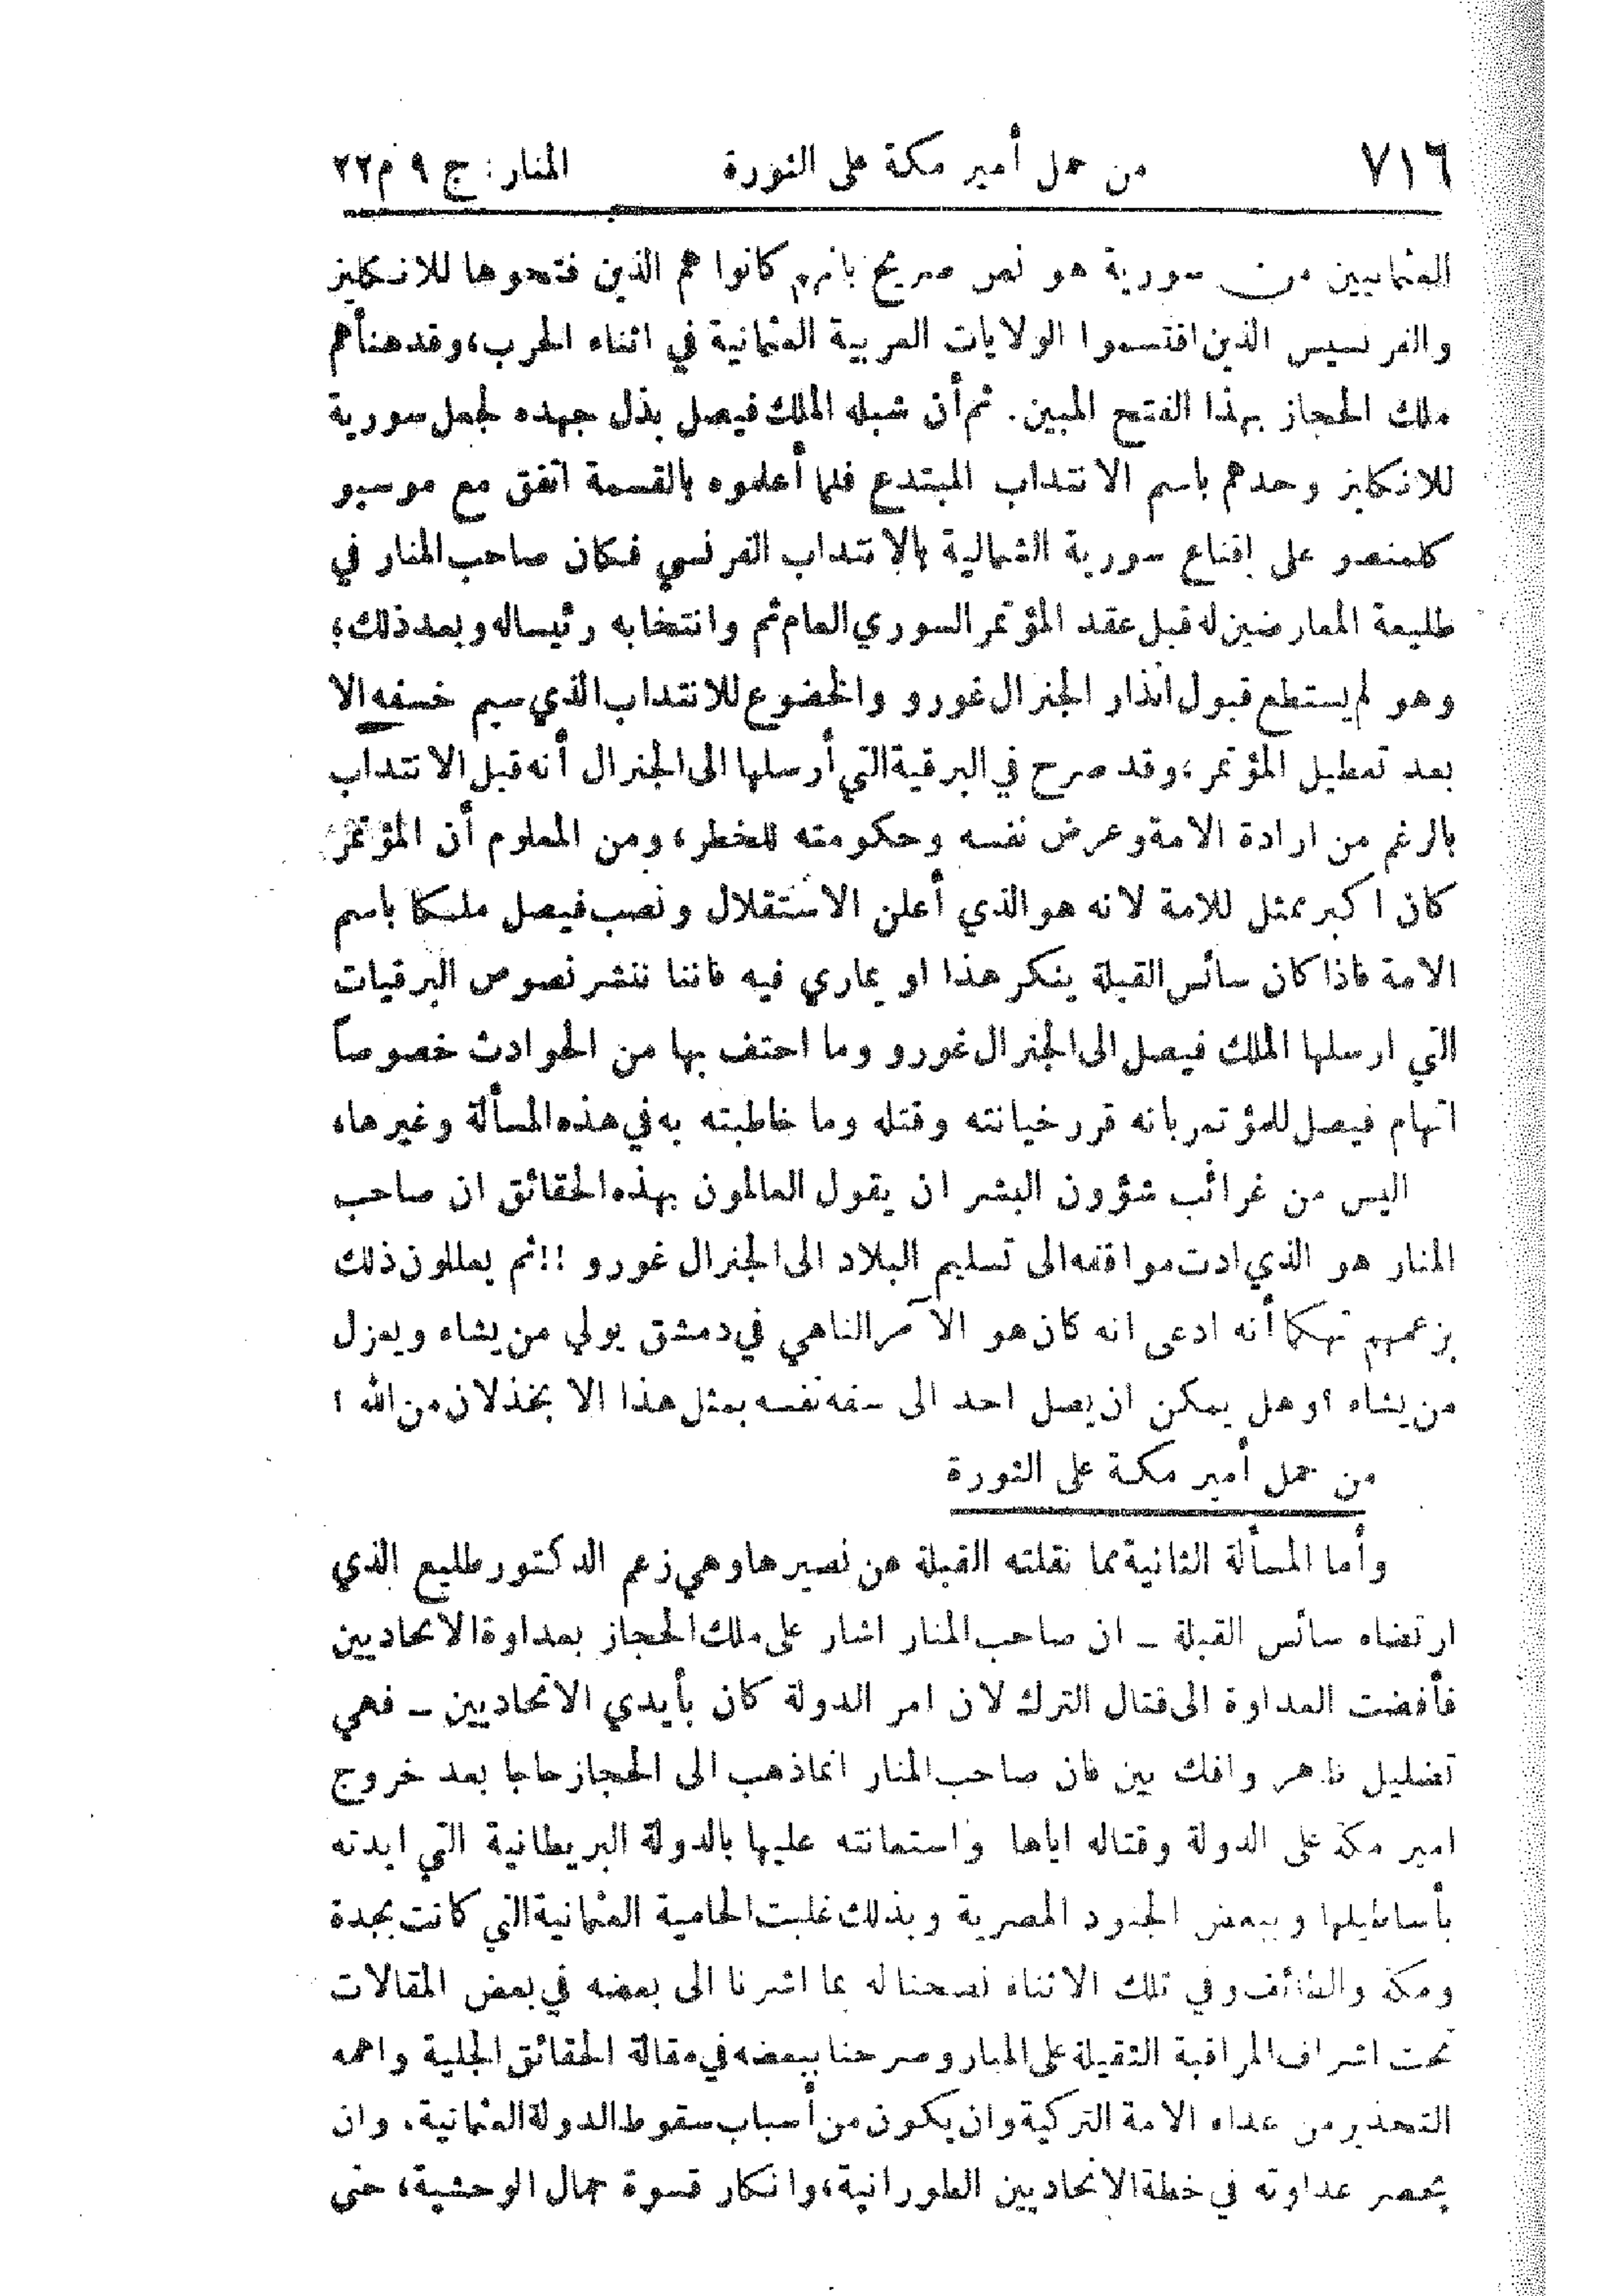 ٧١٦ من حمل أمير مكة على الثورة المنار: ج ٩ م ٢٢
العثمانيين من سورية هو نص صريح بانهم كانوا هم الذين فتحوها للانكليز
والفرنسيس الذين اقتسموا الولايات العربية العثمانية في اثناء الحرب، وقد هنأهم
ملك الحجاز بهذا الفتح المبين. ثم أن شبله الملك فيصل بذل جهده لجعل سورية
للانكليز وحدهم باسم الانتداب المبتدع فلما أعلموه بالقسمة اتفق مع موسيو
كلمنصو على اقناع سورية الشمالية بالانتداب الفرنسي فكان صاحب المنار في
طليعة المعارضين له قبل عقد المؤتمر السوري العام ثم وانتخابه رئيسا له وبعد ذلك؛
وهو لم يستطع قبول انذار الجنرال غورو والخضوع للانتداب الذي سيم خسفه الا
بعد تعطيل المؤتمر، وقد صرح في البرقية التي أرسلها الى الجنرال أنه قبل الانتداب
بالرغم من ارادة الامة وعرض نفسه وحكومته للخطر، ومن المعلوم أن المؤتمر
كان اكبر ممثل للامة لانه هو الذي أعلن الاستقلال ونصب فيصل ملكا باسم
الامة فاذا كان سائس القبلة ينكر هذا او يماري فيه فاننا ننشر نصوص البرقيات
التي ارسلها الملك فيصل الى الجنرال غورو وما احتف بها من الحوادث خصوصاً
اتهام فيصل للمؤتمر بانه قرر خيانته وقتله وما خاطبته به في هذه المسألة وغيرها،
اليس من غرائب شؤون البشر ان يقول العالمون بهذه الحقائق ان صاحب
المنار هو الذي ادت مواقفه الى تسليم البلاد الى الجنرال غورو !! ثم يعللون ذلك
بزعمهم تهكما أنه ادعى انه كان هو الآمر الناهي في دمشق يولي من يشاء ويعزل
من يشاء ؟ وهل يمكن ان يصل احد الى سفه نفسه بمثل هذا الا بخذلان من الله ؟
من حمل أمير مكة على الثورة
وأما المسألة الثانية مما نقلته القبلة عن نصيرها وهي زعم الدكتور طليع الذي
ارتضاه سائس القبلة ــ ان صاحب المنار اشار على ملك الحجاز بعداوة الاتحاديين
فأفضت العداوة الى قتال الترك لان امر الدولة كان بأيدي الاتحاديين ــ فهي
تضليل ظاهر وافك بين فان صاحب المنار انما ذهب الى الحجاز حاجا بعد خروج
امير مكة على الدولة وقتاله اياها واستعانته عليها بالدولة البريطانية التي ايدته
بأساطيلها وببعض الجنود المصرية وبذلك غلبت الحامية العثمانية التي كانت بجدة
ومكة والطائف وفي تلك الاثناء نصحنا له بما اشرنا الى بعضه في بعض المقالات
تحت اشراف المراقبة الثقيلة على المنار وصرحنا ببعضه في مقالة الحقائق الجلية واهمه
التحذير من عداء الامة التركية وان يكون من أسباب سقوط الدولة العثمانية. وان
يحصر عداوته في خطة الاتحاديين الطورانية، وانكار قسوة جمال الوحشية، حتى